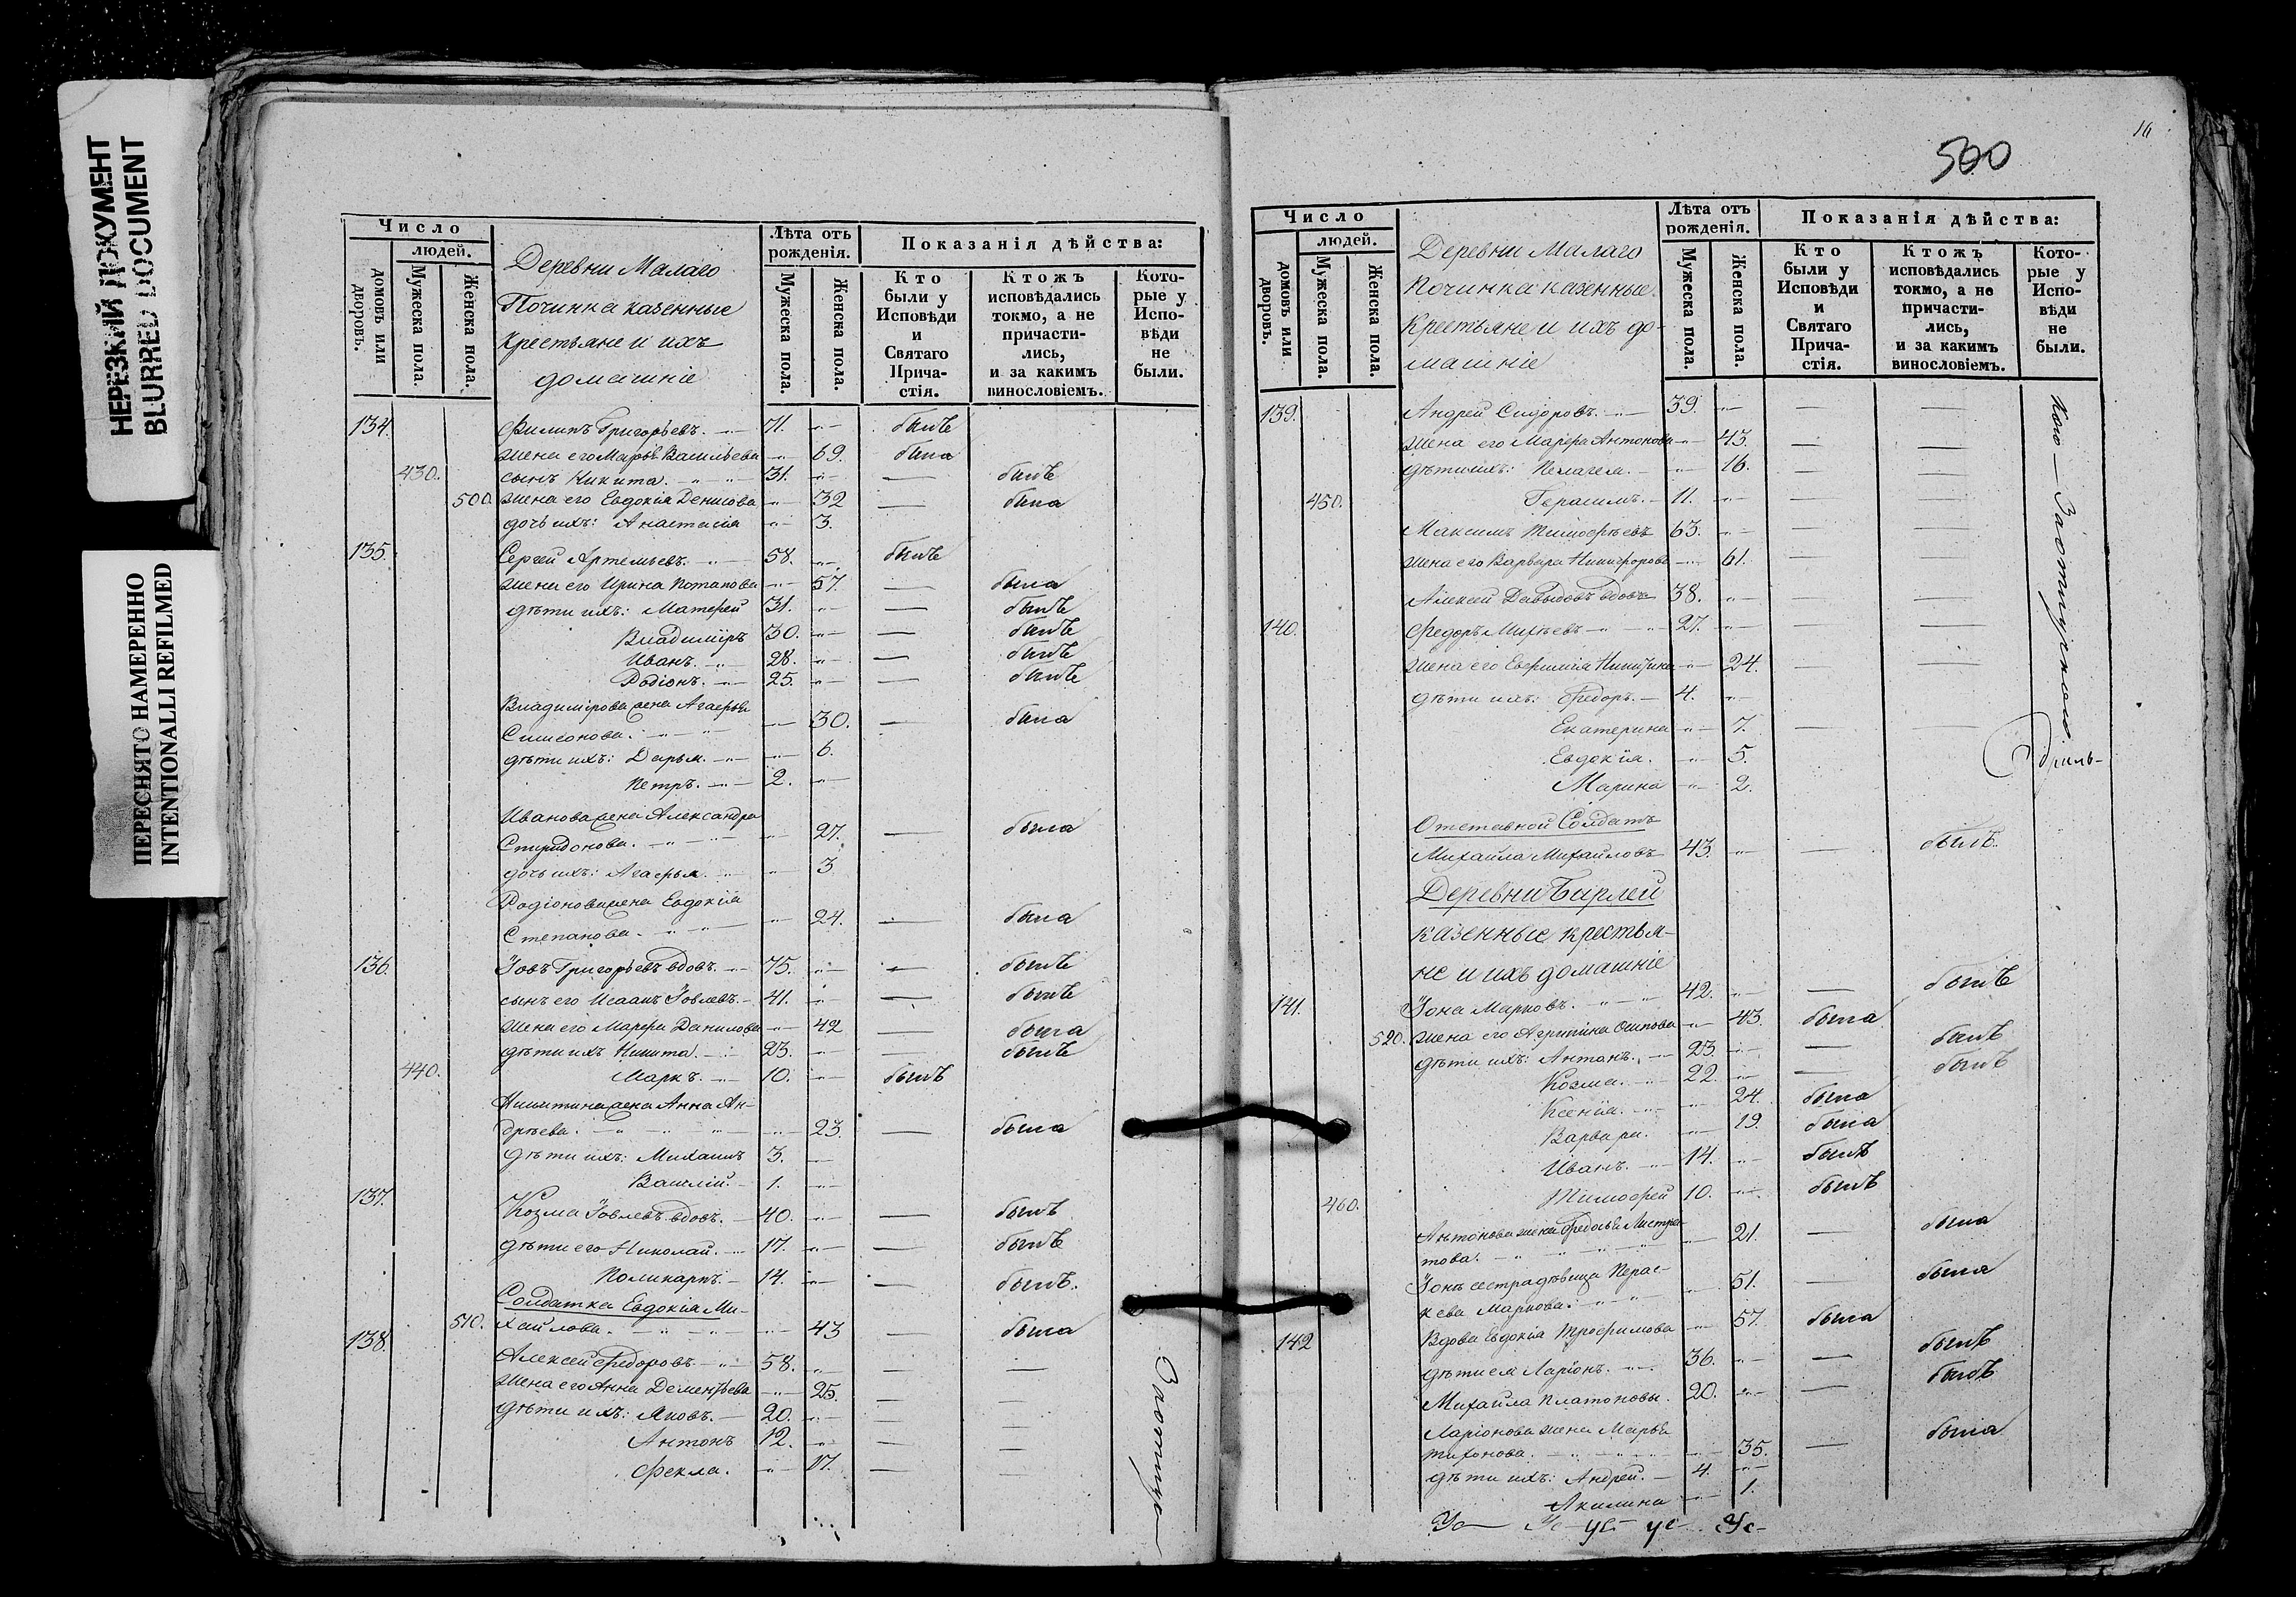 НЕРЕЗКИЙ ДОКУМЕНТ
BLURRED DOCUMENT
ПЕРЕСНЯТО НАМЕРЕННО
INTENTIONALLI REFILMED
Число
людей.
домовъ или дворовъ.
Мужеска пола.
Женска пола.
Деревни Малаго
Починка казенные
Крестьяне и ихъ
домашніе
Лѣта отъ рожденія.
Мужеска пола.
Женска пола.
Показанія дѣйства:
Кто были у Исповѣди и Святаго Прича-стія.
Ктожъ исповѣдались токмо, а не причасти-лись, и за какимъ винословіемъ.
Кото-рые у Испо-вѣди не были.
134. Филипъ Григорьевъ. 71. былъ
жена его Марья Васильева 69. была
430. сынъ Никита. 31. — былъ
500. жена его Евдокія Денисова 32 — была
дочь ихъ: Анастасія 3.
135. Сергей Артемьевъ. 58. былъ
жена его Ирина Потапова 57. — была
дѣти ихъ: Матфей 31. — былъ
Владиміръ 30. — былъ
Иванъ. 28. — былъ
Родіонъ. 25. — былъ
Владимірова жена Агафья
Симеонова. 30. — была
дѣти ихъ: Дарья. 6.
Петръ. 2.
Иванова жена Александра
Спиридонова. 27. — была
дочь ихъ: Агафья. 3
Родіонова жена Евдокія
Степанова. 24. — была
136. Іовъ Григорьевъ вдовъ. 75. — былъ
сынъ его Исаакъ Іовлевъ. 41. — былъ
жена его Марфа Данилова 42 — была
дѣти ихъ Никита. 23. — былъ
440. Маркъ. 10. былъ
Никитина жена Анна Ан-
дрѣева. 23. — была
дѣти ихъ: Михаилъ 3.
Василій. 1.
137. Козма Іовлевъ вдовъ. 40. — былъ
дѣти его Николай. 17. — былъ
Поликарпъ. 14. — былъ.
Солдатка Евдокія Ми-
510. хайлова. 43 — была
138. Алексей Федоровъ 58. — —
жена его Анна Дементьева 25. — —
дѣти ихъ: Яковъ. 20. — —
Антонъ 12. — —
Фекла. 17. — —
500
16
Число
людей.
домовъ или дворовъ.
Мужеска пола.
Женска пола.
Деревни Малаго
Починка казенные
Крестьяне и ихъ до-
машніе
Лѣта отъ рожденія.
Мужеска пола.
Женска пола.
Показанія дѣйства:
Кто были у Исповѣди и Святаго Прича-стія.
Ктожъ исповѣдались токмо, а не причасти-лись, и за какимъ винословіемъ.
Кото-рые у Испо-вѣди не были.
139. Андрей Сидоровъ. 39. — —
жена его Марфа Антонова 43. — —
дѣти ихъ: Пелагея. 16. — —
450. Герасимъ. 11. — —
Максимъ Тимофѣевъ 63. — —
жена его Варвара Никифорова 61. — —
Алексей Давыдовъ вдовъ 38. — —
140. Федоръ Михѣевъ 27. — —
жена его Евфимія Никитина 24. — —
дѣти ихъ: Федоръ. 4.
Екатерина 7. — —
Евдокія. 5.
Марина 2.
Отставной Солдатъ
Михайла Михайловъ 43. — былъ.
Деревни Бирлей
казенные крестья-
не и ихъ домашніе
141. Іона Марковъ. 42. — былъ
520. жена его Агрипина Осипова 43. была
дѣти ихъ: Антонъ. 23. — былъ
Козма. 22. — былъ
Ксенія. 24. была
Варвара. 19. была
Иванъ. 14. былъ
460. Тимофей 10. былъ
Антонова жена Федосья
това. 21. — была
сестра дѣвица Парас-
кева Маркова. 51. — была
142 Вдова Евдокія Трофимова 57. была
дѣти ея Ларіонъ. 36. — былъ
Михайла Платоновы. 20. — былъ
Ларіонова жена Марья
Тихонова. 35. — была
дѣти ихъ: Андрей. 4.
Акилина 1.